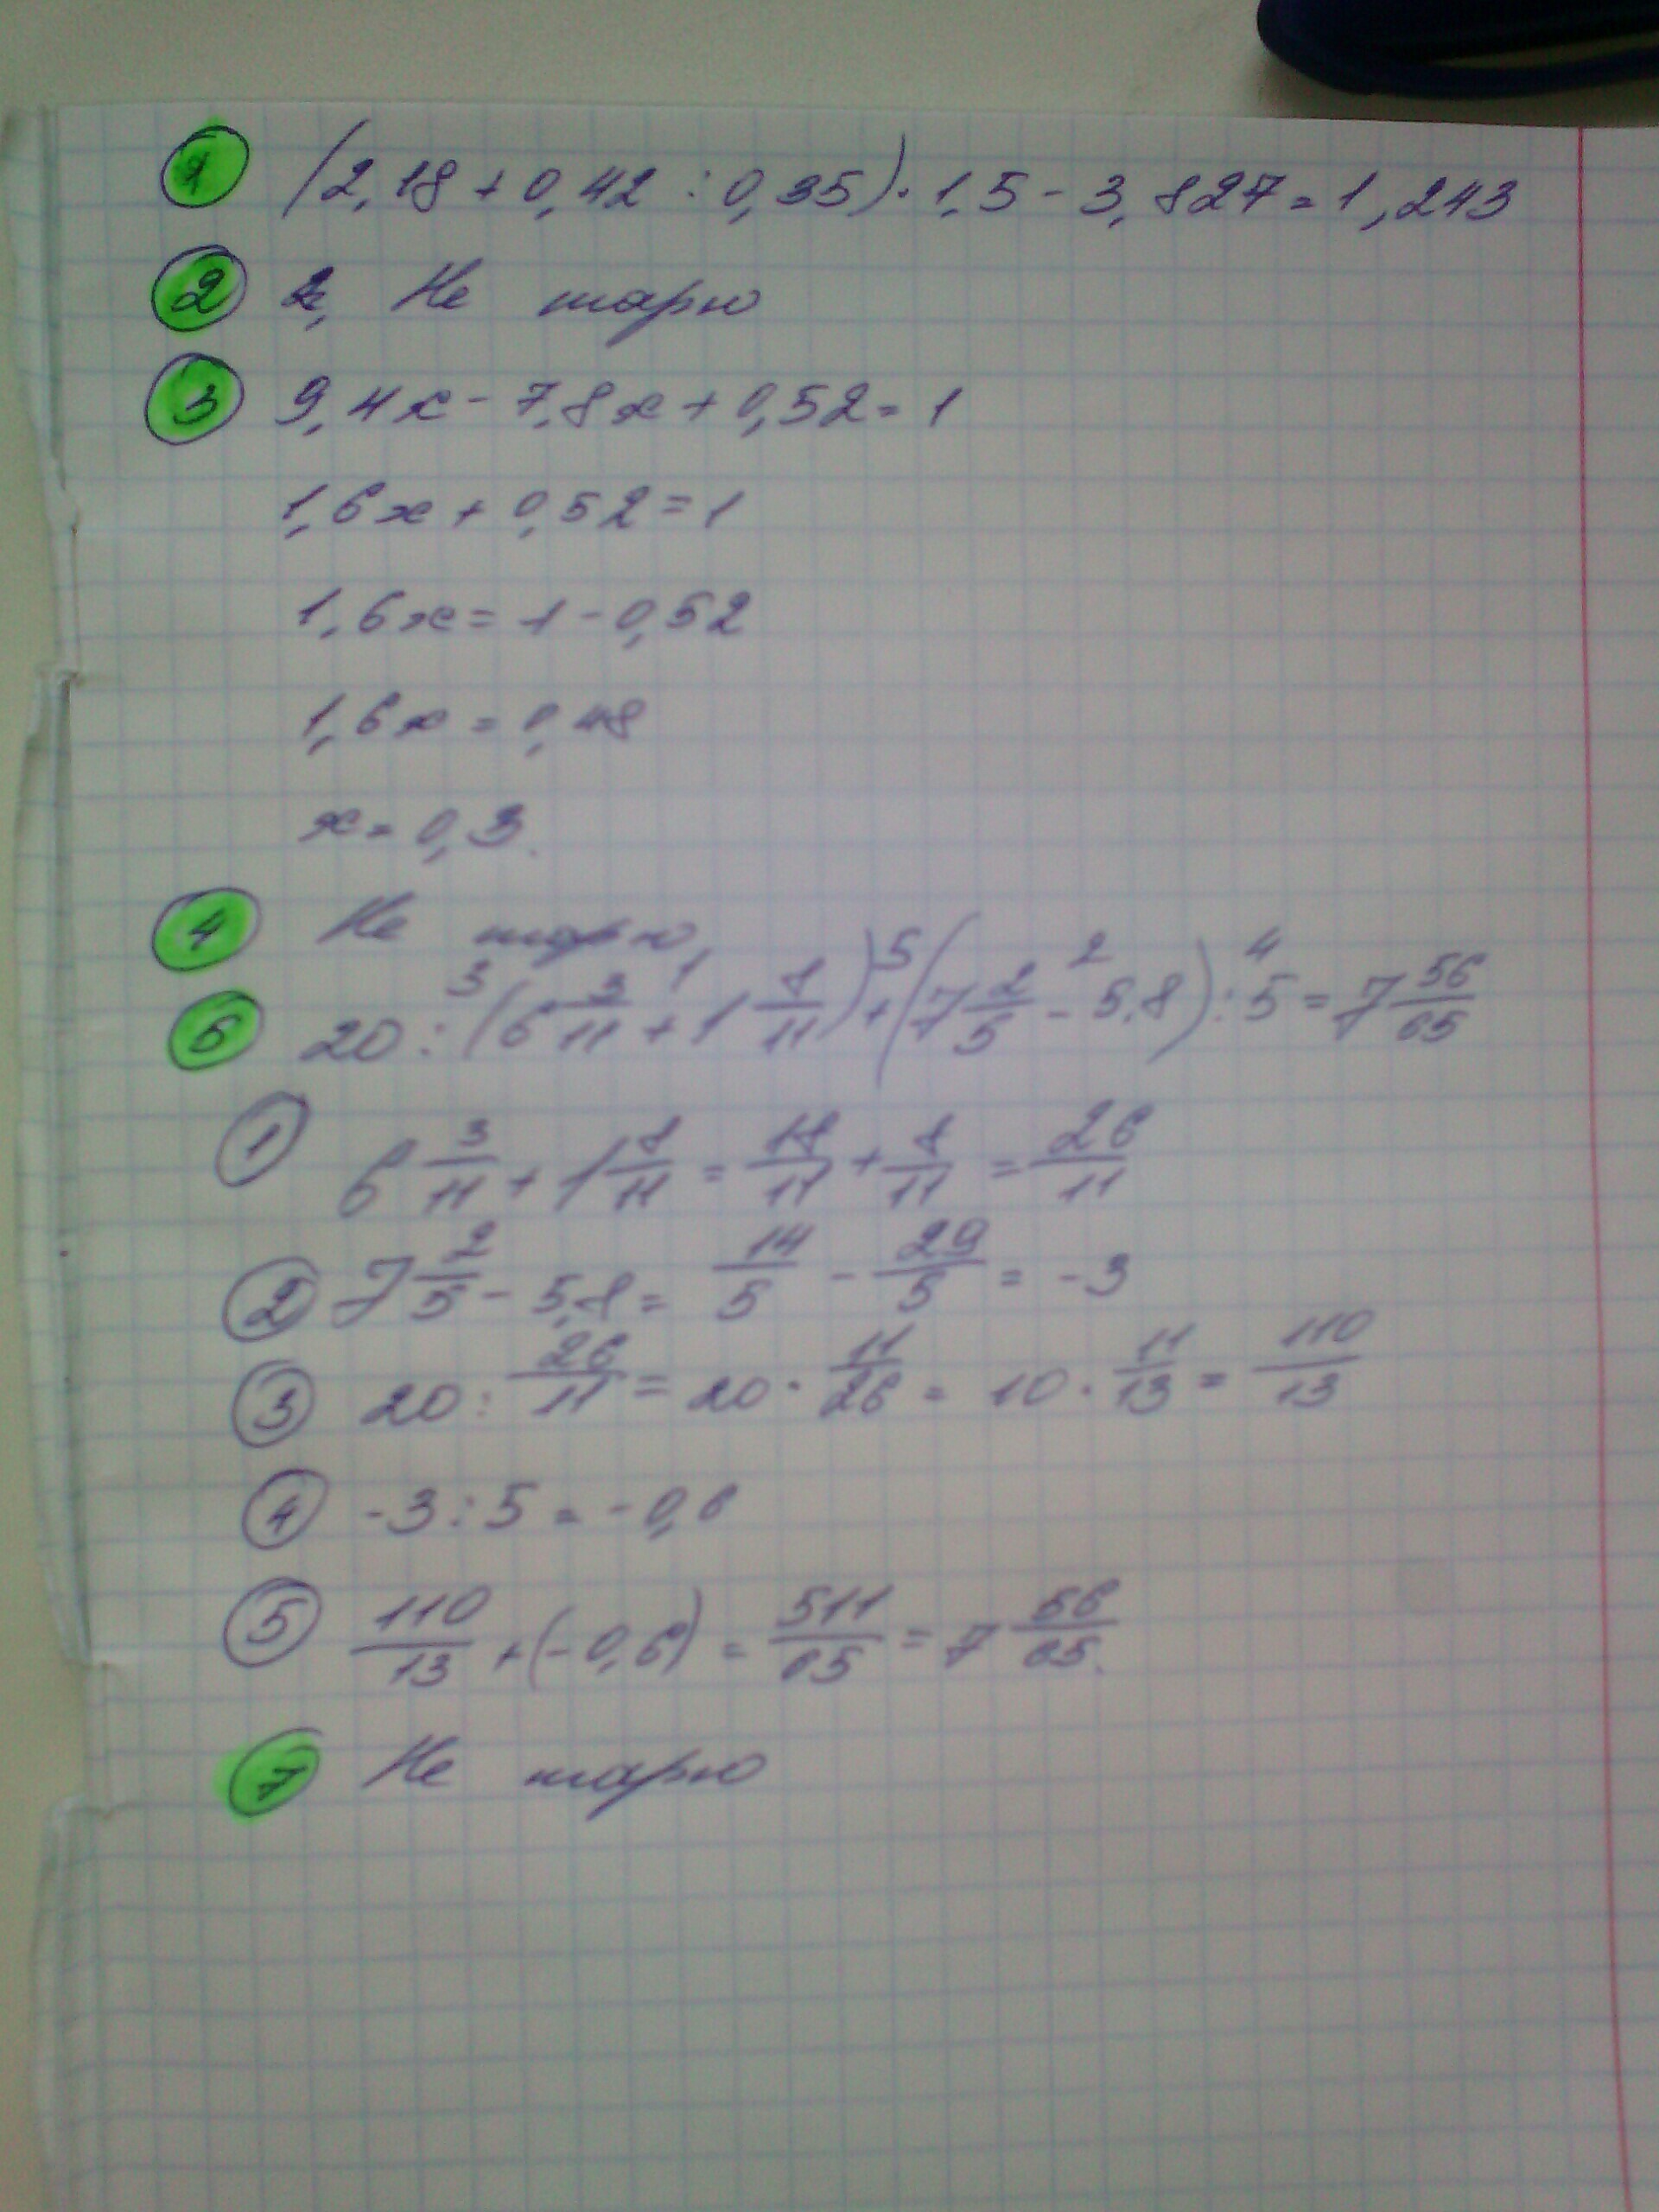 1 (2,18 + 0,42 : 0,35) · 1,5 - 3,827 = 1,243
2 Не шарю
3 9,4x - 7,8x + 0,52 = 1
1,6x + 0,52 = 1
1,6x = 1 - 0,52
1,6x = 0,48
x = 0,3.
4 Не шарю
3 1 5 2 4
6 20 : (6 3/11 + 1 8/11) + (7 2/5 - 5,8) : 5 = 7 56/65
1 6 3/11 + 1 8/11 = 18/11 + 8/11 = 26/11
2 7 2/5 - 5,8 = 14/5 - 29/5 = -3
3 20 : 26/11 = 20 · 11/26 = 10 · 11/13 = 110/13
4 -3 : 5 = -0,6
5 110/13 + (-0,6) = 511/65 = 7 56/65.
7 Не шарю